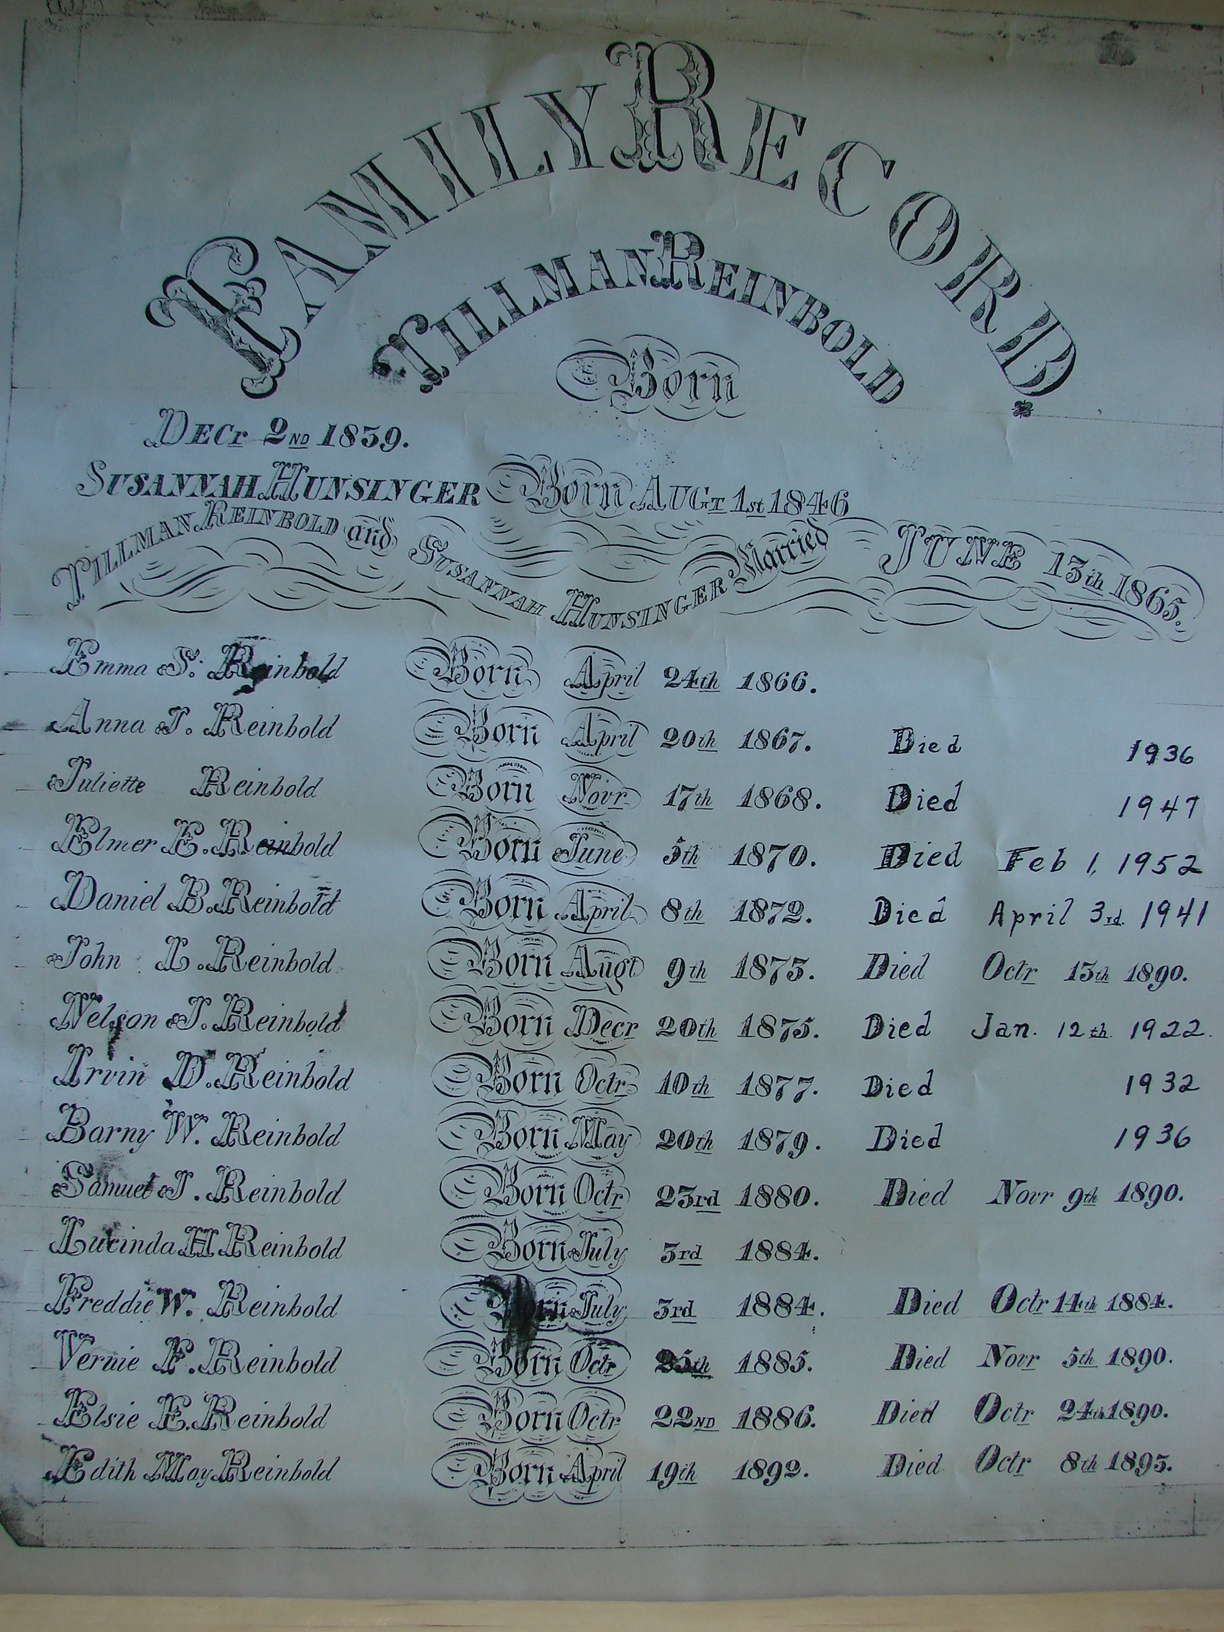 FAMILY RECORD.
TILLMAN REINBOLD
Born
DECr 2ND 1839.
SUSANNAH HUNSINGER Born AUGT 1st 1846
TILLMAN REINBOLD and SUSANNAH HUNSINGER Married JUNE 13th 1865.
Emma S. Reinbold Born April 24th 1866.
Anna J. Reinbold Born April 20th 1867. Died 1936
Juliette Reinbold Born Novr 17th 1868. Died 1947
Elmer E. Reinbold Born June 5th 1870. Died Feb 1, 1952
Daniel B. Reinbold Born April 8th 1872. Died April 3rd. 1941
John L. Reinbold Born Augt 9th 1873. Died Octr 13th 1890.
Nelson J. Reinbold Born Decr 20th 1875. Died Jan. 12th. 1922.
Irvin D. Reinbold Born Octr 10th 1877. Died 1932
Barny W. Reinbold Born May 20th 1879. Died 1936
Samuel J. Reinbold Born Octr 23rd 1880. Died Novr 9th 1890.
Lucinda H Reinbold Born July 3rd 1884.
Freddie W. Reinbold Born July 3rd 1884. Died Octr 14th 1884.
Vernie F. Reinbold Born Octr 25th 1885. Died Novr 5th 1890.
Elsie E. Reinbold Born Octr 22ND 1886. Died Octr 24th 1890.
Edith May Reinbold Born April 19th 1892. Died Octr 8th 1893.